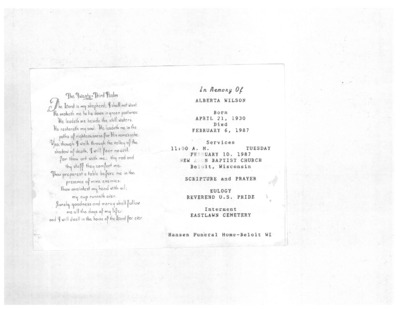 The Twenty-Third Psalm
The Lord is my shepherd; I shall not want.
He maketh me to lie down in green pastures
He leadeth me beside the still waters.
He restoreth my soul. He leadeth me in the
paths of righteousness for His namesake.
Yea, though I walk through the valley of the
shadow of death, I will fear no evil:
for thou art with me; thy rod and
thy staff they comfort me.
Thou preparest a table before me in the
presence of mine enemies:
thou anointest my head with oil;
my cup runneth over.
Surely goodness and mercy shall follow
me all the days of my life:
and I will dwell in the house of the Lord for ever
In Memory Of
ALBERTA WILSON
Born
APRIL 21, 1930
Died
FEBRUARY 6, 1987
Services
A. M. TUESDAY
10, 1987
BAPTIST CHURCH
Wisconsin
SCRIPTURE and PRAYER
EULOGY
REVEREND U.S. PRIDE
Interment
EASTLAWN CEMETERY
Hansen Funeral Home-Beloit WI